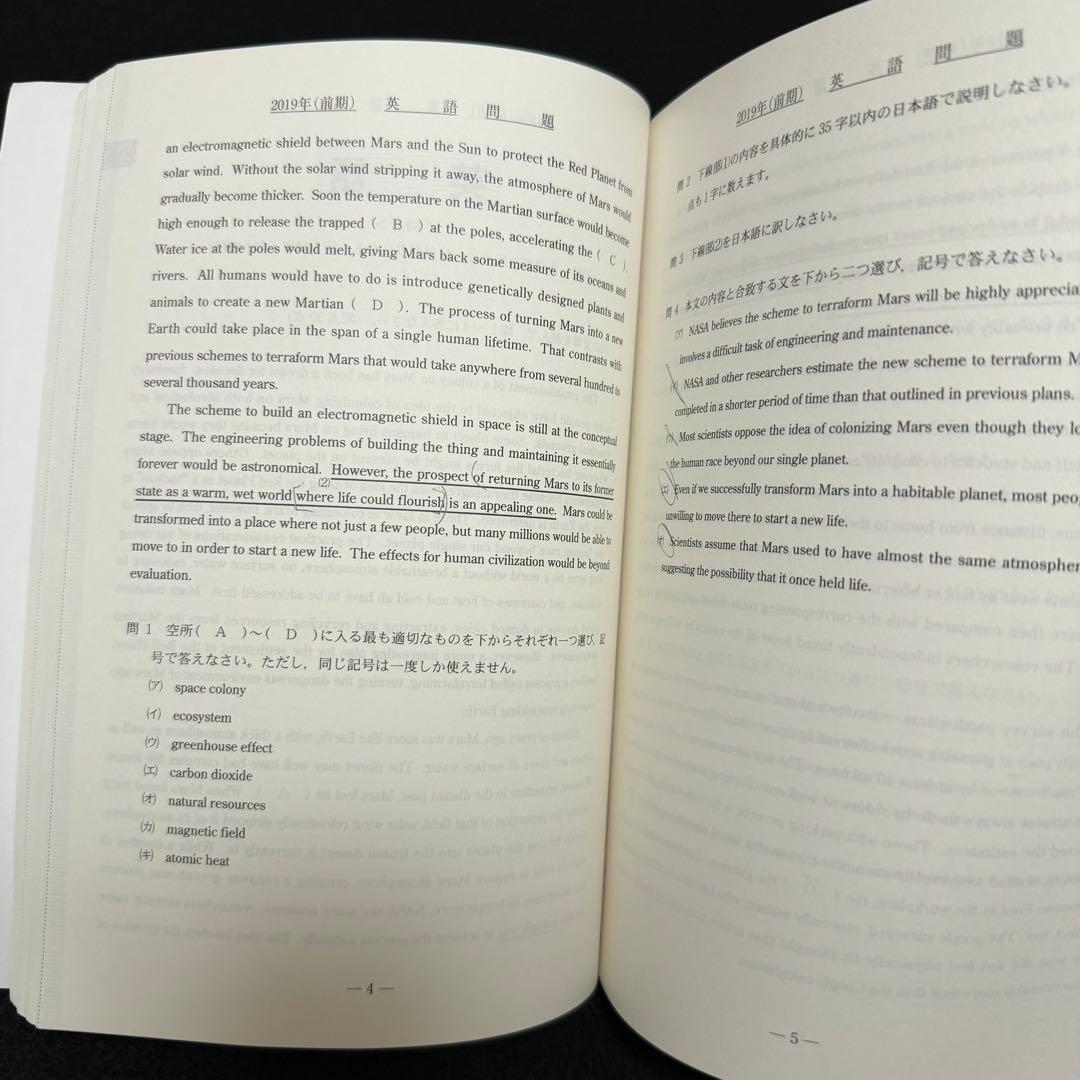 2019年(前期) 英語問題
an electromagnetic shield between Mars and the Sun to protect the Red Planet from
solar wind. Without the solar wind stripping it away, the atmosphere of Mars would
gradually become thicker. Soon the temperature on the Martian surface would become
high enough to release the trapped ( B ) at the poles, accelerating the ( C ).
Water ice at the poles would melt, giving Mars back some measure of its oceans and
rivers. All humans would have to do is introduce genetically designed plants and
animals to create a new Martian ( D ). The process of turning Mars into a new
Earth could take place in the span of a single human lifetime. That contrasts with
previous schemes to terraform Mars that would take anywhere from several hundred to
several thousand years.
The scheme to build an electromagnetic shield in space is still at the conceptual
stage. The engineering problems of building the thing and maintaining it essentially
forever would be astronomical. However, the prospect of returning Mars to its former
(2)
state as a warm, wet world where life could flourish is an appealing one. Mars could be
transformed into a place where not just a few people, but many millions would be able to
move to in order to start a new life. The effects for human civilization would be beyond
evaluation.
問1 空所( A )~( D )に入る最も適切なものを下からそれぞれ一つ選び, 記
号で答えなさい。ただし, 同じ記号は一度しか使えません。
(ア) space colony
(イ) ecosystem
(ウ) greenhouse effect
(エ) carbon dioxide
(オ) natural resources
(カ) magnetic field
(キ) atomic heat
— 4 —
2019年(前期) 英語問題
問2 下線部(1)の内容を具体的に35字以内の日本語で説明しなさい。
点も1字に数えます。
問3 下線部(2)を日本語に訳しなさい。
問4 本文の内容と合致する文を下から二つ選び, 記号で答えなさい。
(ア) NASA believes the scheme to terraform Mars will be highly apprecia
involves a difficult task of engineering and maintenance.
(イ) NASA and other researchers estimate the new scheme to terraform M
completed in a shorter period of time than that outlined in previous plans.
(ウ) Most scientists oppose the idea of colonizing Mars even though they lo
the human race beyond our single planet.
(エ) Even if we successfully transform Mars into a habitable planet, most peop
unwilling to move there to start a new life.
(オ) Scientists assume that Mars used to have almost the same atmospher
suggesting the possibility that it once held life.
— 5 —